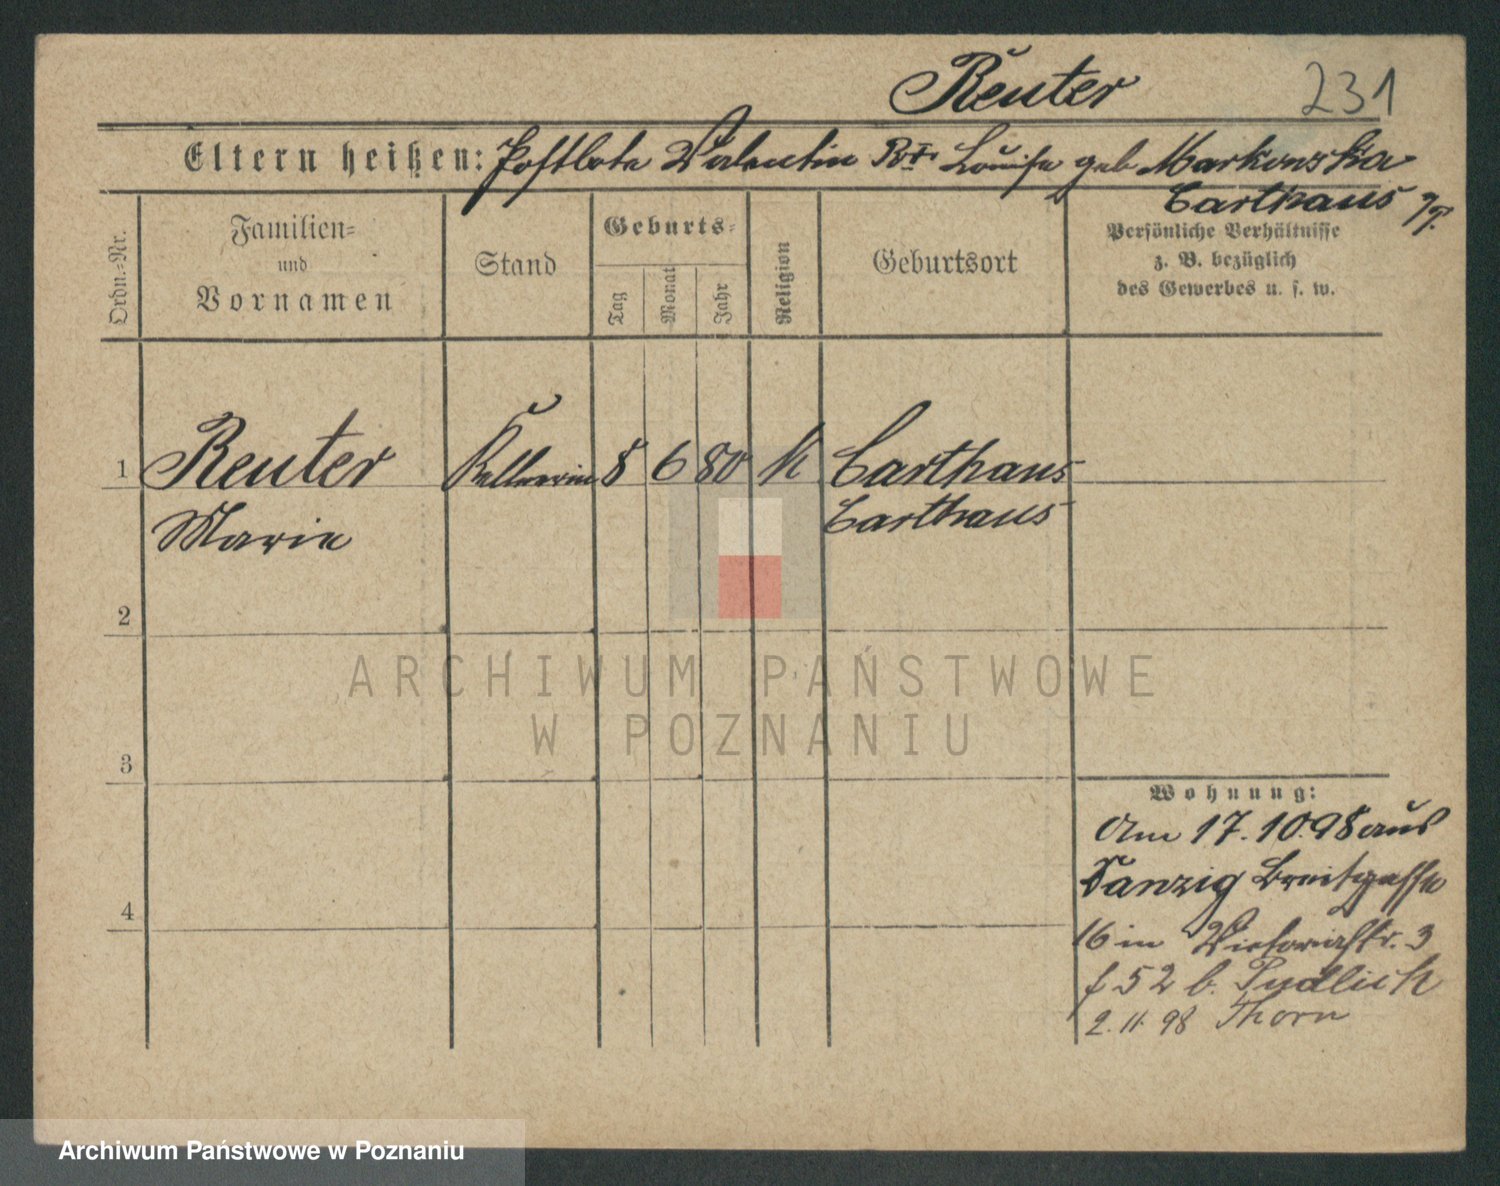 Reuter 231
Eltern heißen: Postbote Valentin Louise geb Markowska
Carthaus
Ordn.=Nr.
Familien=
und
Vornamen
Stand
Geburts=
Tag
Monat
Jahr
Religion
Geburtsort
Persönliche Verhältnisse
z. B. bezüglich
des Gewerbes u. s. w.
1 Reuter Kellnerin 8 6 80 k Carthaus
Marie Carthaus
2
ARCHIWUM PAŃSTWOWE
W POZNANIU
3
Wohnung:
Am 17.10.98 aus
Danzig Breitgasse
4
16 in Victoriastr. 3
f 52 b. Pudlich
2.11.98 Thorn
Archiwum Państwowe w Poznaniu